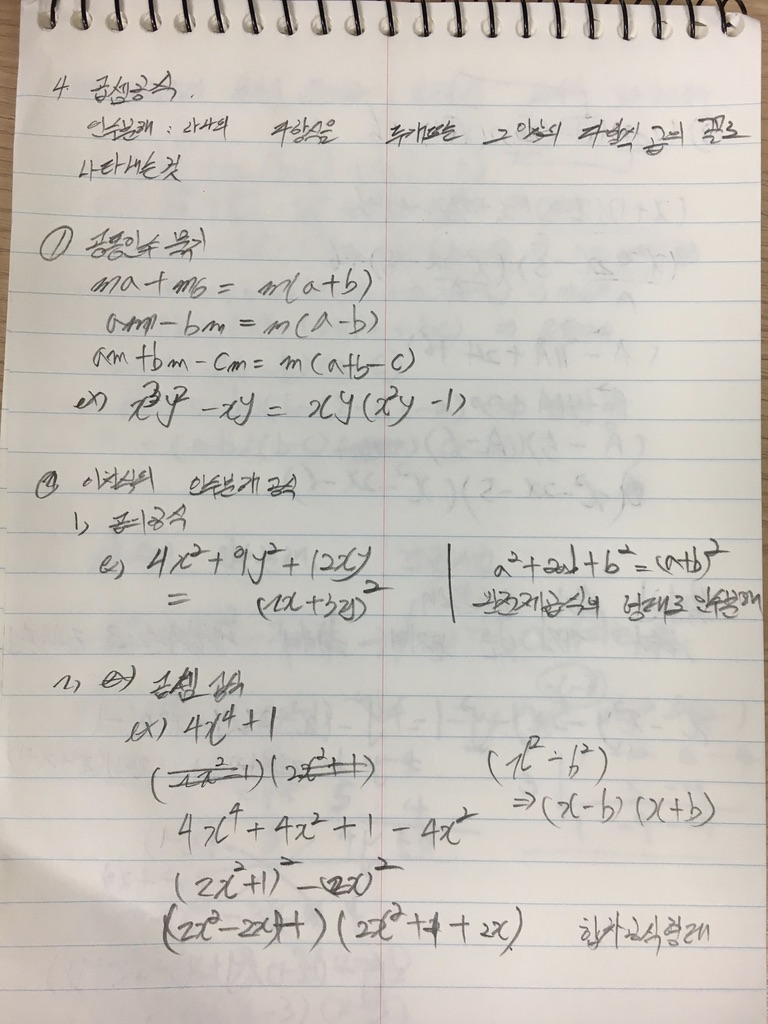 4 곱셈공식.
인수분해 : 하나의 다항식을 두개또는 그 이상의 다항식 곱의 꼴로
나타내는것
① 공통인수 묶기
ma + mb = m(a+b)
am - bm = m(a-b)
am + bm - cm = m(a+b-c)
ex) x³y² - xy = xy(x²y - 1)
② 이차식의 인수분해 공식
1)
ex) 4x² + 9y² + 12xy
= (2x+3y)²
a² + 2ab + b² = (a+b)²
완전제곱식의 형태로 인수분해
2) 곱셈 공식
ex) 4x⁴ + 1
4x⁴ + 4x² + 1 - 4x²
(2x²+1)² - (2x)²
(2x² - 2x + 1) (2x² + 1 + 2x) 합차공식형태
(x² - b²)
⇒ (x-b) (x+b)